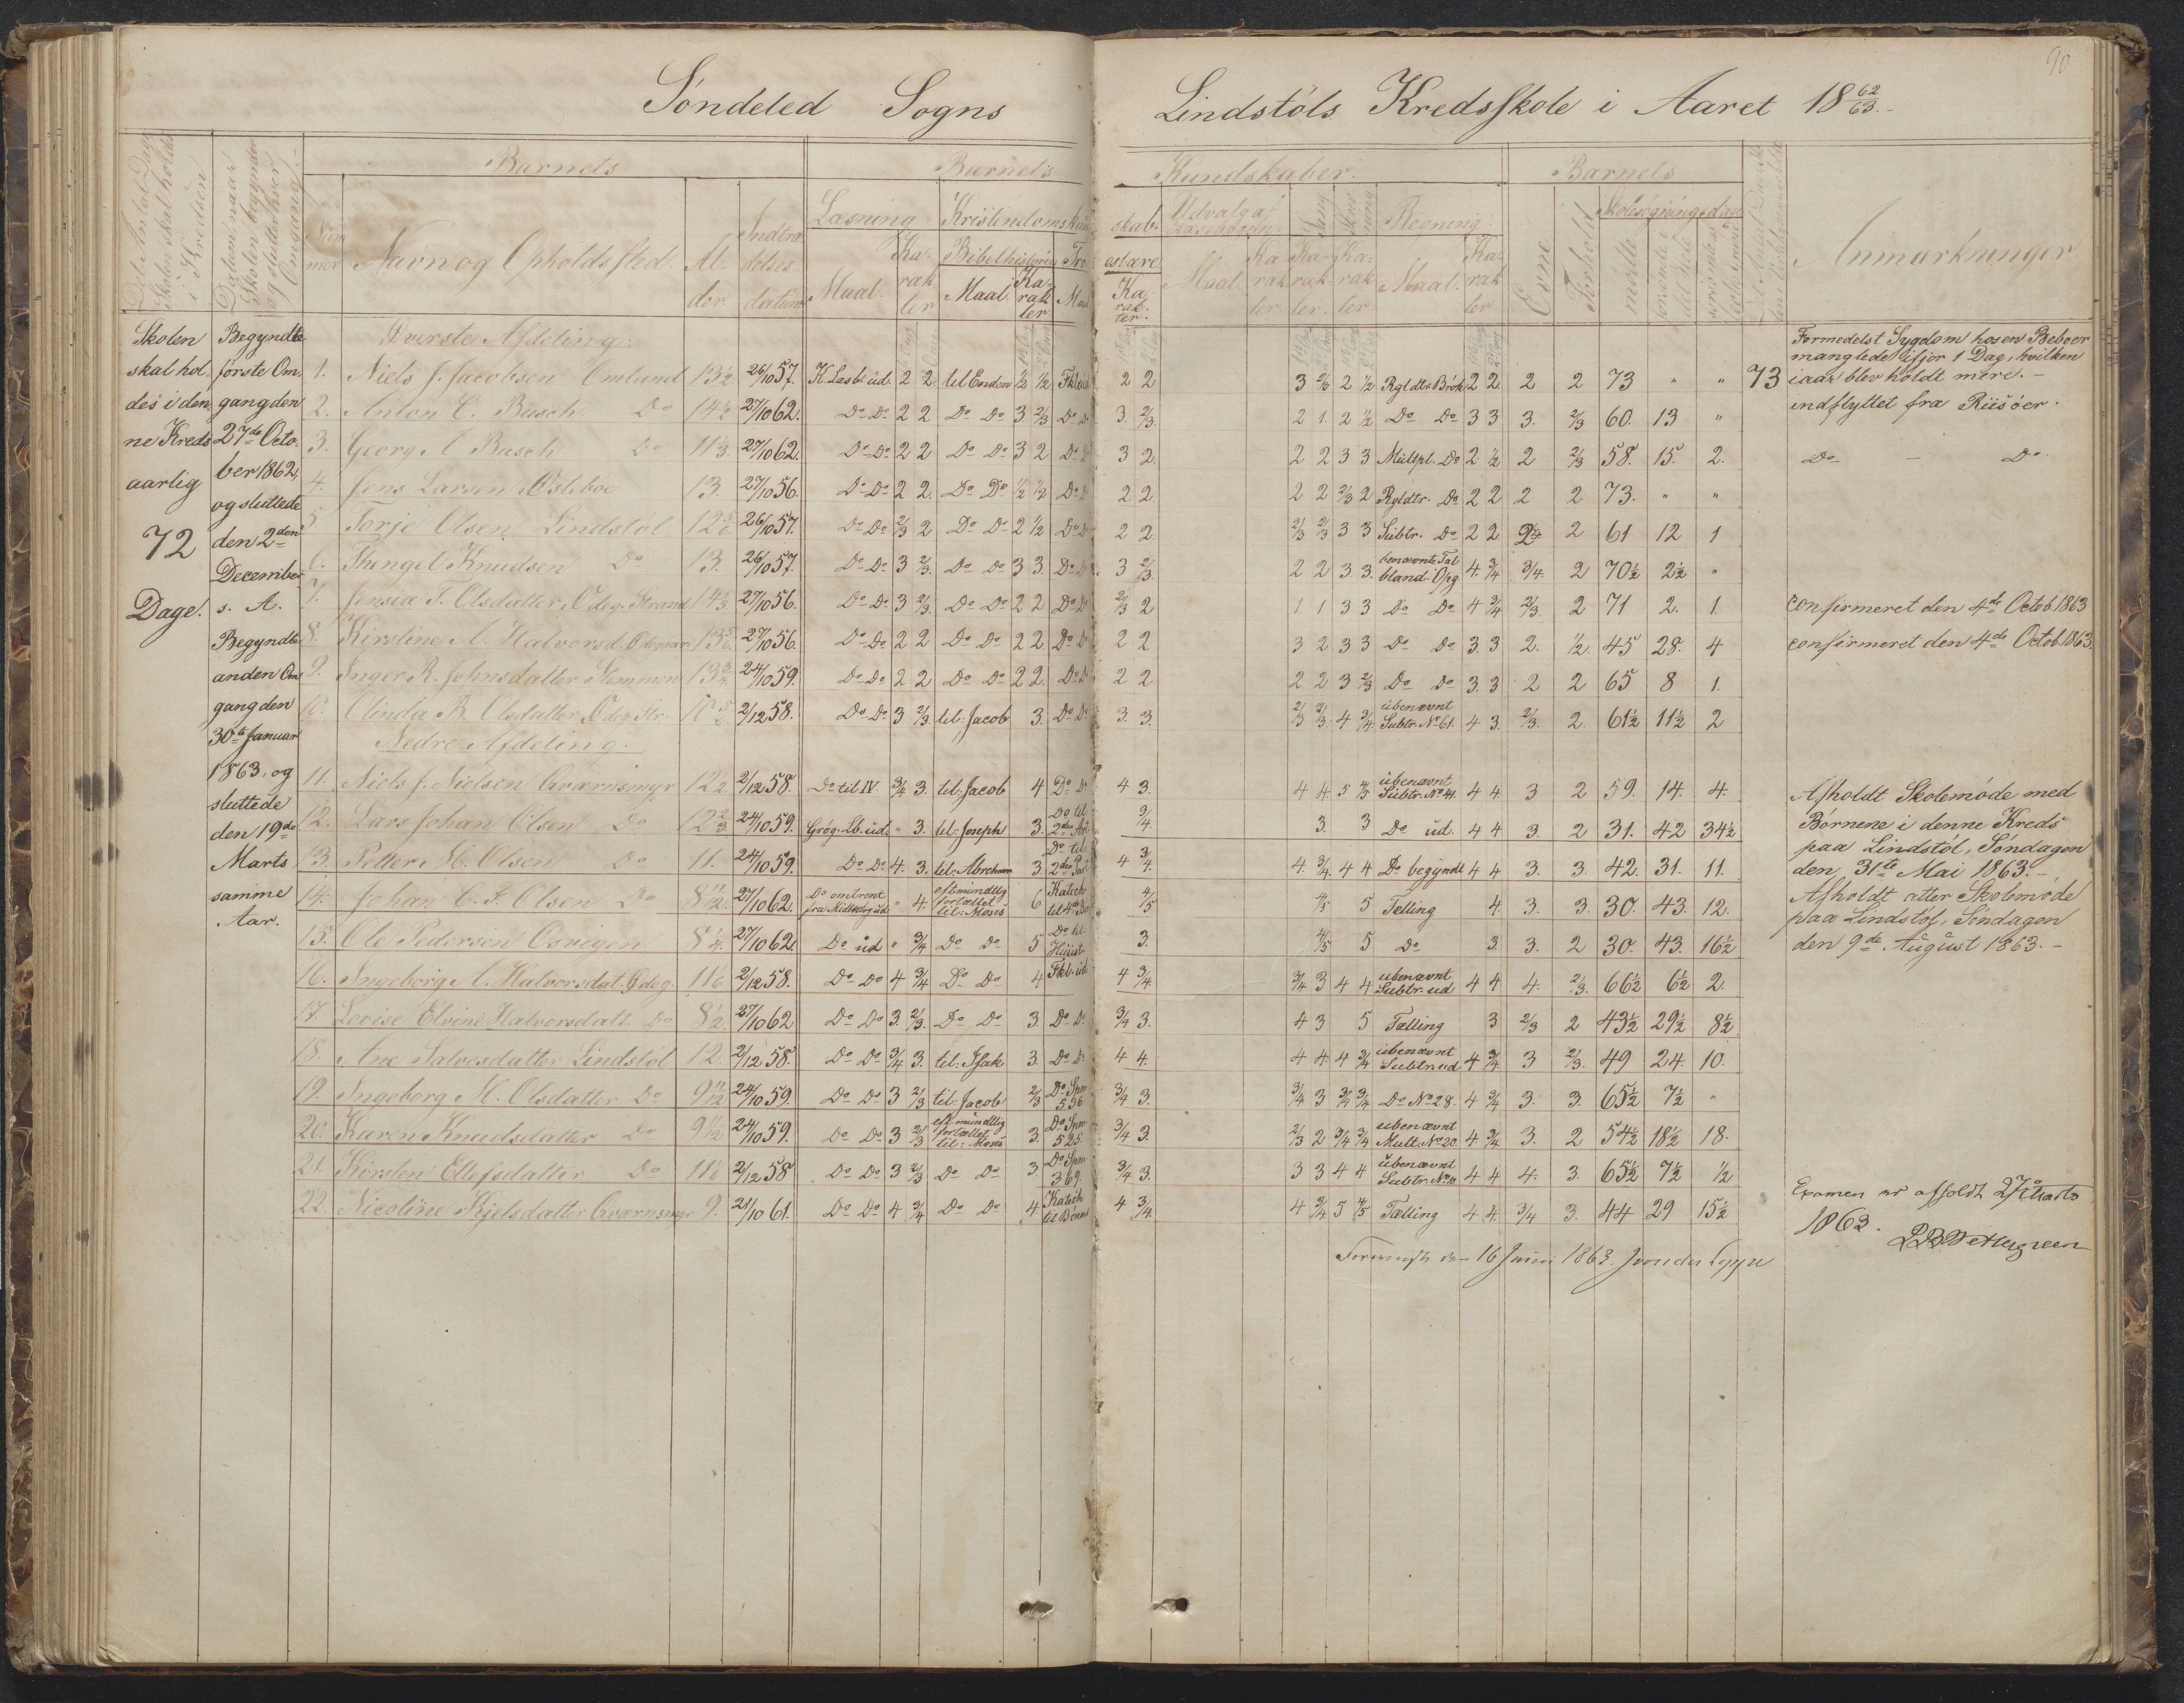 90
Søndeled Sogns Lindstøls Kredsskole i Aaret 18 62/63.
Barnets Barnets Kundskaber. Barnets
Navn og Opholdssted. Al-der. Indtrædelses-datum Læsning Kristendomskundskab. Udvalg af Læsebogen Sang Regning Evne Forhold Skolesøgningsdage Anmærkninger
Maal. Karakter Bibelhistorie Maal. Karakter Troeslære Karakter. Maal Karakter Karakter. Karakter Maal. Karakter mødte
Skolen
skal hol
des i den
ne Kreds
aarlig
72
Dage.
Begyndte
første Om
gang den
27de Octo
ber 1862,
og sluttede
den 2den
December
s. A.
Begyndte
anden Om
gang den
30te Januar
1863, og
sluttede
den 19de
Marts
samme
Aar.
Øverste Afdeling.
1. Niels J. Jacobsen Omlund 13½ 26/10 57. K. Læsb. ud. 2 2 til Enden ½ ½ Fkl. ud 2 2 3 2 ½ Rgldtr. Brøk 2 2 2 2 73 " " 73
2. Anton C. Busch Do 14½ 27/10 62. Do Do 2 2 Do Do 3 2/3 Do Do 3. 2/3. 2 1. 2 ½ Do Do 3 3 3. 2/3 60. 13 "
3. Georg A. Busch Do 11⅓ 27/10 62. Do Do 2 2 Do Do 3 2 Do Do 3 2. 2 2 3 3 Multpl. Do 2 ½ 2 2/3 58. 15. 2.
4. Jens Larsen Østeboe 13. 27/10 56. Do Do 2 2. Do Do ½ ½ Do Do 2 2 2 2 2/3 2 Rgldtr. Do 2 2 2 2 73. " "
5. Torje Olsen Lindstøl 12 26/10 57. Do Do 2/3 2 Do Do 2 ½ Do Do 2 2 2/3 2/3 3 3 Subtr. Do 2 2 2 61 12 1
6. Thingel Knudsen Do 13. 26/10 57. Do Do 3 2/3. Do Do 3 3. Do Do 3 2/3. 2 2 3 3. benævnte Tal bland. Opg 4. 3/4 3/4. 2 70½ 2½ "
7. Jensia T. Olsdatter, Ødeg. Strand 14 27/10 56. Do Do 3 2/3. Do Do 2 2 Do Do 2/3 2 1 1 3 3 Do Do 4 3/4 2/3. 2 71 2. 1.
8. Kirstine A. Halvorsd. 13 27/10 56. Do Do 2 2 Do Do 2 2. Do Do 2 2 3 2 3 3 Do Do 3. 3 2. ½. 45 28. 4
9. Inger R. Johnsdatter Stemmen 13¾. 24/10 59. Do Do 2 2 Do Do 2 2. Do Do 2 2 2 2 3 2/3 Do Do 3. 3 2 2 65 8 1.
10. Olinda R. Olsdatter, Ødeg. Str. 10 2/12 58. Do Do 3 2/3. til: Jacob 3. Do Do 3. 3. 2/3 2/3. 4 3/4. ubenævnt Subtr. No 61. 4 3. 2/3. 2. 61½ 11½ 2
Nedre Afdeling.
11. Niels J. Nielsen Qværnsmyr 12½ 2/12 58. Do til IV. 3/4 3. til: Jacob 4 Do Do 4 3. 4 4. 5 4/5 ubenævnt Subtr. No 41. 4 4. 3 2 59. 14. 4.
12. Lars Johan Olsen Do 12⅔. 24/10 59. Grøg. Lb. ud. " 3. til: Joseph 3. Do til 2den Art. 3/4. 3. 3 Do ud. 4 4 3. 2 31. 42 34½
13. Petter M. Olsen Do 11. 24/10 59. Do Do 4. 3. til: Abraham 3 Do til 2den Part 4 3/4. 4. 3/4. 4 4 Do begyndt 4 4 3. 3. 42. 31. 11.
14. Johan C. F. Olsen Do 8 11/12. 27/10 62. Do omtrent fra Midten og ud. " 4. eft. mundtlig fortællet til: Moses 6 Katech. til 4de Bøn 4/5 4/5 5 Tælling 4. 3. 3. 30. 43. 12.
15. Ole Pedersen Osvigen 8¼. 27/10 62. Do ud " 3/4 Do Do 5 Do til 3. 4/5 5 Do 3. 3. 2 30. 43. 16½
16. Ingeborg A. Halvorsdat. Ødeg. 11 2/12 58. Do Do 4 3/4 Do Do 4 Fkl. ud 4 3/4. 3/4 3 4 4 ubenævnt Subtr. ud 4 4 4. 2/3. 66½ 6½ 2.
17. Lovise Elvine Halvorsdatt. Do 8½ 27/10 62 Do Do 3. 2/3. Do Do 3. Do Do 3/4 3. 4 3 5 Tælling 3 2/3 2 43½ 29½ 8½
18. Ane Salvesdatter Lindstøl 12. 2/12 58. Do Do 3/4 3. til: Isak 3. Do Do 4 4. 4 4 4 3/4 ubenævnt Subtr. ud 4 3/4. 3 2/3. 49 24. 10.
19. Ingeborg M. Olsdatter Do 9 11/12 24/10 59. Do Do 3 2/3 til: Jacob 2/3 Do Spm 536 3/4 3. 3/4 3 3/4 3/4 Do No 28. 4 3/4 3. 3. 65½ 7½ "
20. Karen Knudsdatter Do 9 11/12 24/10 59. Do Do 3 2/3 eft. mundtlig fortællet til: Moses 3. Do Spm 525 3/4 3. 2/3 2 3/4 3/4 ubenævnt Mult. No 20. 4 3/4 3. 2 54½ 18½ 18.
21. Kirsten Ellefsdatter Do 11 2/12 58 Do Do 3 2/3 Do Do 3 Do Spm 369. 3/4 3. 3 3 4 4 ubenævnt Subtr. No 10 4 4 4. 3. 65½ 7½ ½
22. Nicoline Kjelsdatter Qværnsmyr 9. 21/10 61. Do Do 4 3/4 Do Do 4 Katech til Bønnen 4 3/4. 4 3/4 5 4/5 Tælling 4 4. 3/4 3. 44 29 15½
Formedelst Sygdom hos en Beboer
manglede ifjor 1 Dag, hvilken
iaar blev holdt mere.
indflyttet fra Riisøer.
Do - Do
confirmeret den 4de Octob. 1863
confirmeret den 4de Octob. 1863.
Afholdt Skolemøde med
Børnene i denne Kreds
paa Lindstøl, Søndagen
den 31te Mai 1863.
Afholdt atter Skolemøde
paa Lindstøl, Søndagen
den 9de August 1863.
Examen er afholdt 27 Marts
1863.
Forevist den 16 Juni 1863.